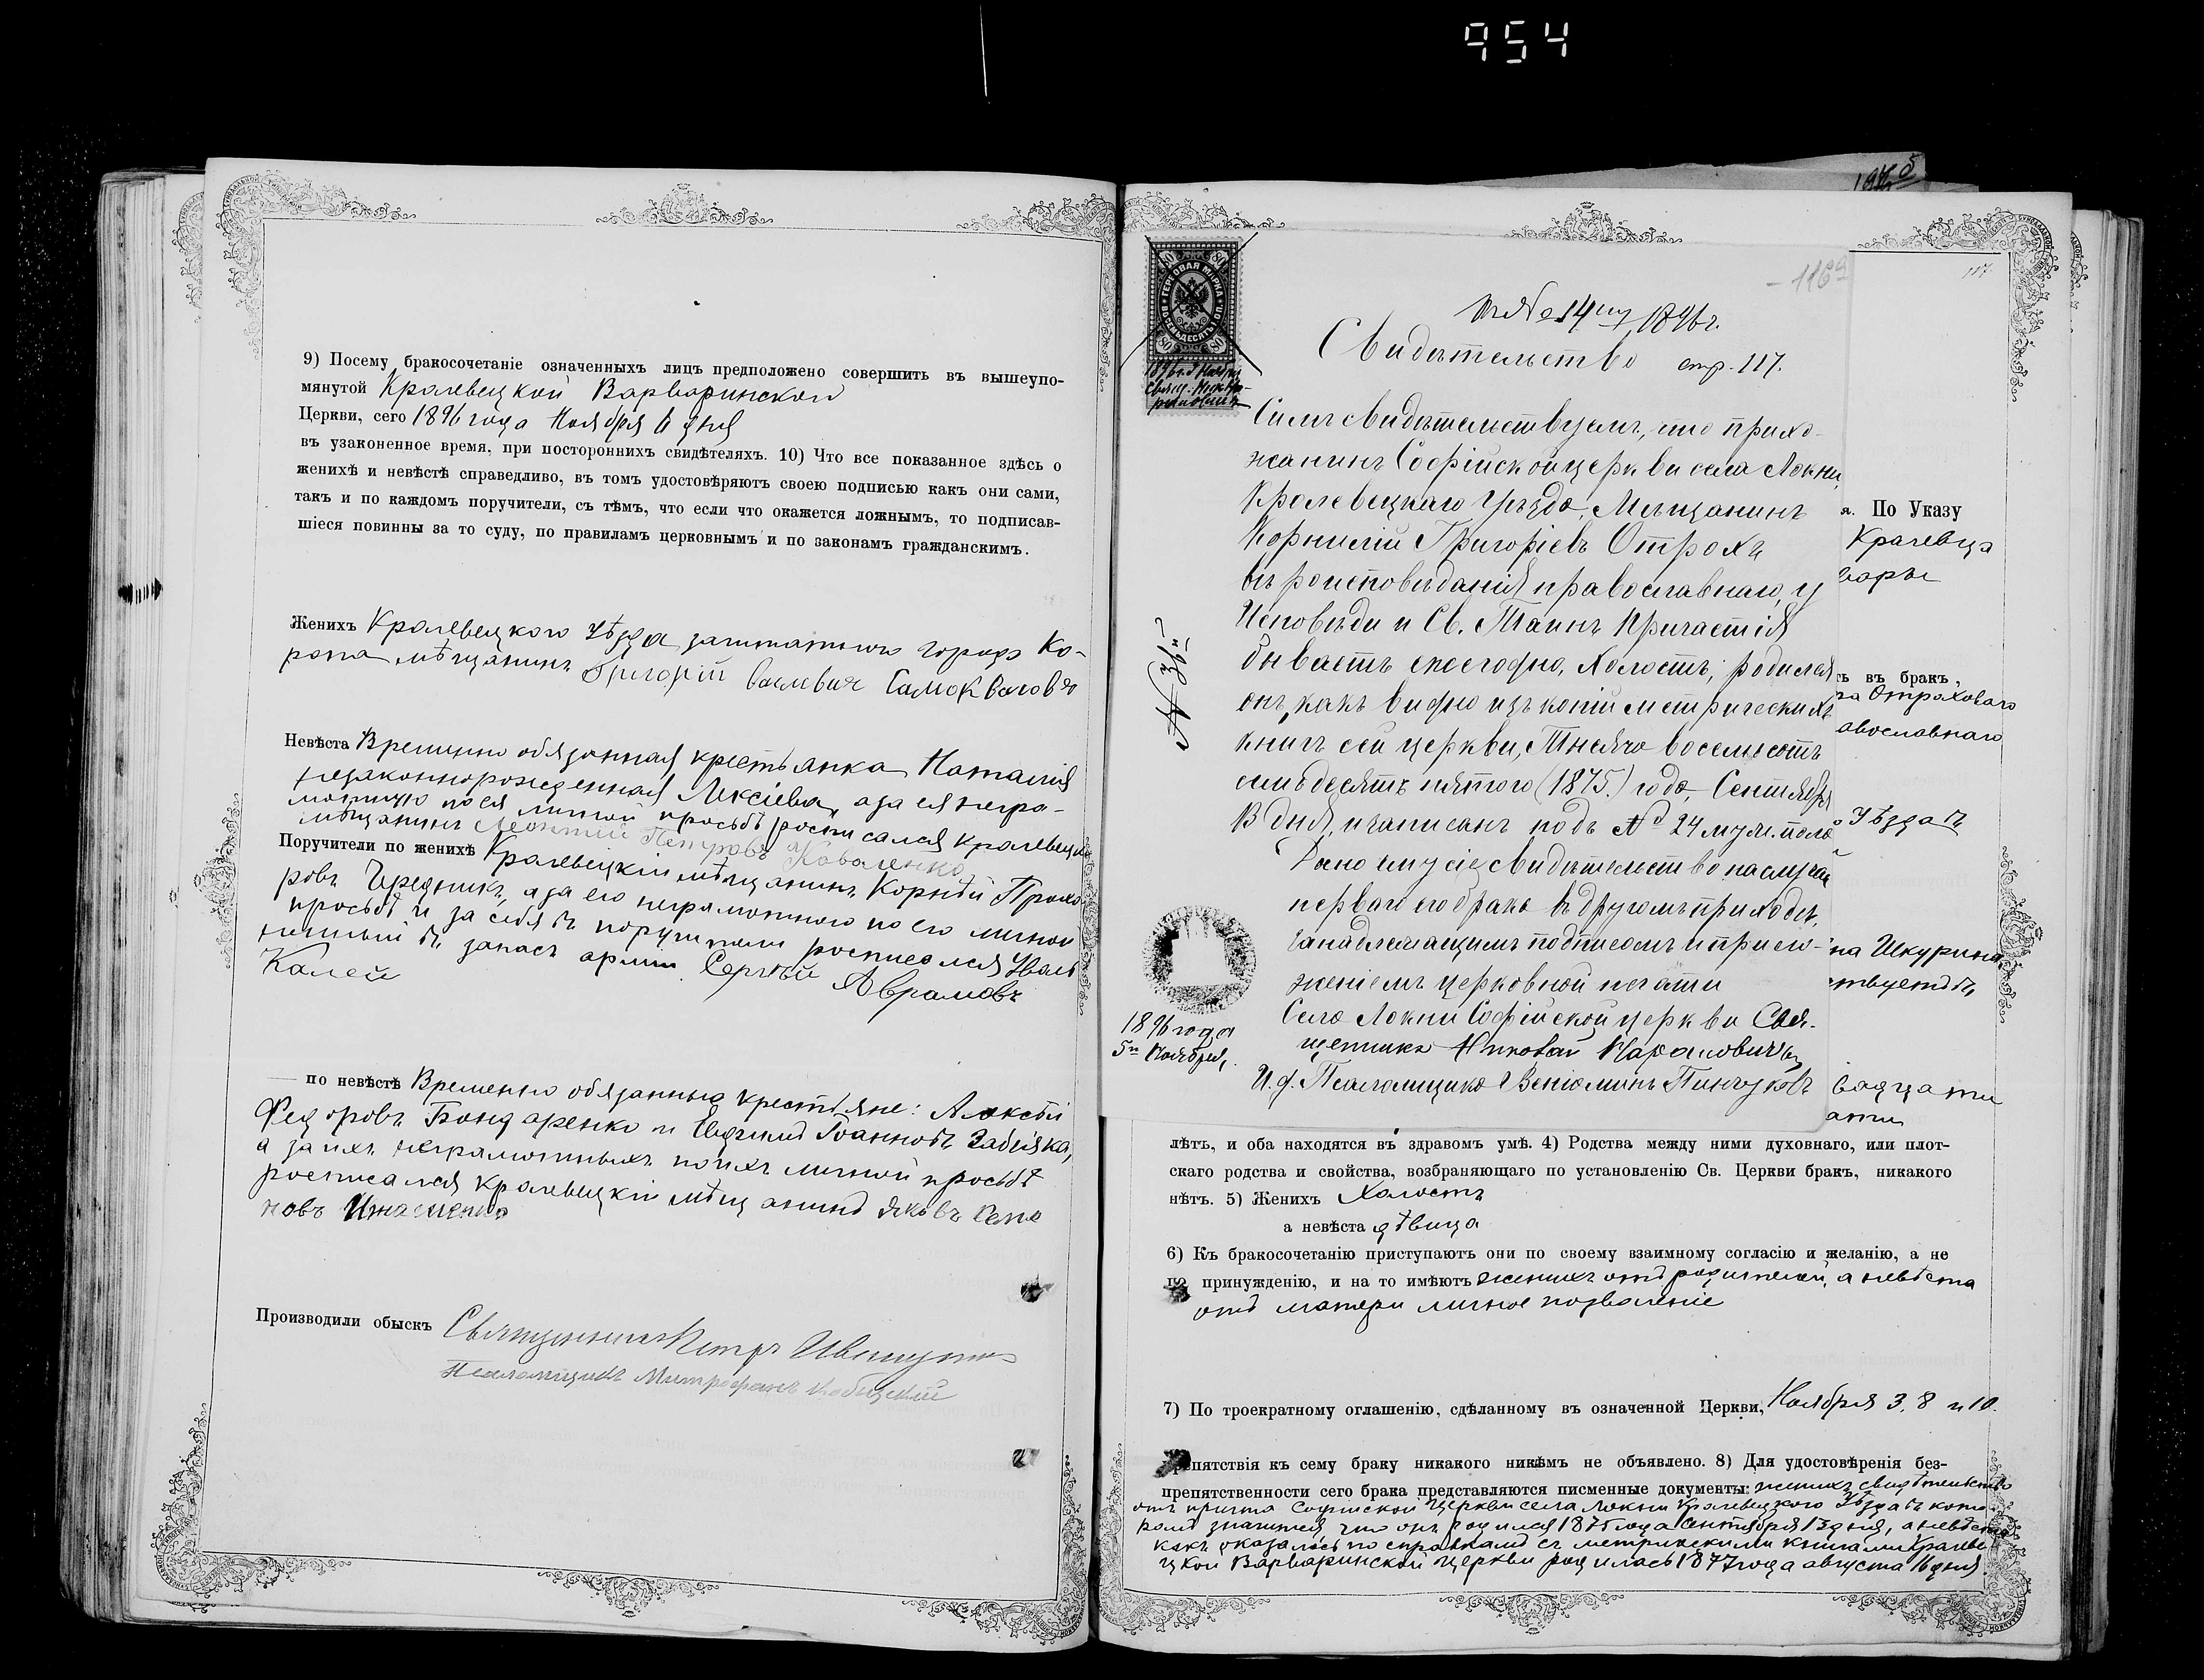 954
9) Посему бракосочетаніе означенныхъ лицъ предположено совершить въ вышеупо-
мянутой Кролевецкой Варваринской
Церкви, сего 1896 года Ноября 6 дня
въ узаконенное время, при постороннихъ свидѣтеляхъ. 10) Что все показанное здѣсь о
женихѣ и невѣстѣ справедливо, въ томъ удостовѣряютъ своею подписью какъ они сами,
такъ и по каждомъ поручители, съ тѣмъ, что если что окажется ложнымъ, то подписав-
шіеся повинны за то суду, по правиламъ церковнымъ и по законамъ гражданскимъ.
Женихъ Кролевецкого Уѣзда заштатного города Ко-
ропа мѣщанинъ Григорій Самоквасовъ
Невѣста Временно обязанная крестьянка Наталія
незаконнорожденная Алексіева, а за ея негра-
мотную по ея личной просьбѣ росписался кролевецкій
мѣщанинъ Леонтій Петровъ Коваленко
Поручители по женихѣ Кролевецкій мѣщанинъ Корнѣй Прохо-
ровъ Чередникъ, а за его неграмотного по его личной
просьбѣ и за себя въ поручители росписался Уволь
ненный въ запасъ арміи Сергѣй Аврамовъ
Калей
по невѣстѣ Временно обязанные крестьяне: Алексѣй
Федоровъ Бондаренко и Евфимій Іоанновъ Забіяка,
а за ихъ неграмотныхъ по ихъ личной просьбѣ
росписался кролевецкій мѣщанинъ Яковъ Семе
новъ
Производили обыскъ Священникъ Петръ
Псаломщикъ Митрофанъ
117.
116а
къ № 14му 1896 г.
Свидѣтельство стр. 117.
80 ГЕРБОВАЯ МАРКА 80
80 ВОСЕМЬДЕСЯТЪ КОП. 80
1896 г. Ноября
Свящ. Ник. Кар-
Симъ свидѣтельствуемъ, что прихо-
жанинъ Софійской церкви села Локни,
Кролевецкаго Уѣзда, Мѣщанинъ
Корнилій Григоріевъ Отрохъ
вѣроисповѣданія православнаго, у
Исповѣди и Св. Таинъ Причастія
бываетъ ежегодно, Холостъ; родился
онъ, какъ видно изъ копіи метрическихъ
книгъ сей церкви, Тысяча восемьсотъ
семьдесятъ пятого (1875.) года, Сентября
13 дня, и записанъ подъ № 24 муж. пола
Дано ему сіе свидѣтельство на случай
перваго его брака въ другомъ приходѣ,
за надлежащимъ подписомъ и прило-
женіемъ церковной печати
Села Локни Софійской церкви Свя-
щенникъ Николай Карановичъ
И. д. Псаломщика Веніаминъ Пинчуковъ
1896 года
5го Ноября.
я. По Указу
Кролевца
вары
ь въ бракъ,
на Отрохового
авославнаго
Уѣзда въ
на Шкурина
ствуетъ въ
вадцати
ати
лѣтъ, и оба находятся въ здравомъ умѣ. 4) Родства между ними духовнаго, или плот-
скаго родства и свойства, возбраняющаго по установленію Св. Церкви бракъ, никакого
нѣтъ. 5) Женихъ Холостъ
а невѣста дѣвица
6) Къ бракосочетанію приступаютъ они по своему взаимному согласію и желанію, а не
по принужденію, и на то имѣютъ женихъ отъ родителей, а невѣста
отъ матери личное позволеніе
7) По троекратному оглашенію, сдѣланному въ означенной Церкви, Ноября 3, 8 и 10.
препятствія къ сему браку никакого никѣмъ не объявлено. 8) Для удостовѣренія без-
препятственности сего брака представляются писменные документы: женихъ свидѣтельство
отъ причта Софійской Церкви села Локни Кролевецкого Уѣзда въ кото-
ромъ значится, что онъ родился 1875 года Сентября 13 дня, а невѣста
какъ оказалось по справкамъ съ метрическими книгами Кролеве-
цкой Варваринской Церкви родилась 1877 года августа 16 дня.